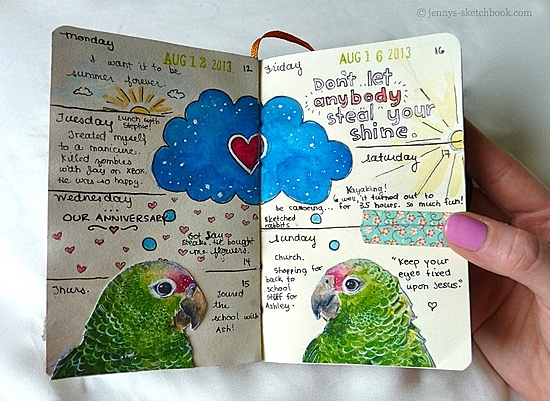 © jennys-sketchbook.com
Monday
AUG 12 2013
12
I want it to be
summer forever.
Tuesday
Lunch with
Stephie!
Treated myself
to a manicure.
Killed zombies
with Jay on xbox.
He was so happy.
Wednesday
OUR ANNIVERSARY
Got Jay
steaks. He bought
me flowers.
14
Thurs.
15
Toured
the
school with
Ash!
Friday
AUG 16 2013
16
Don't let
anybody
steal your
shine.
Saturday
17
Kayaking!
it turned out to
be canoeing... for 3.5 hours. so much fun!
sketched
rabbits
Sunday
Church.
Shopping for
back to
school
stuff for
Ashley.
"Keep your
eyes fixed
upon Jesus."